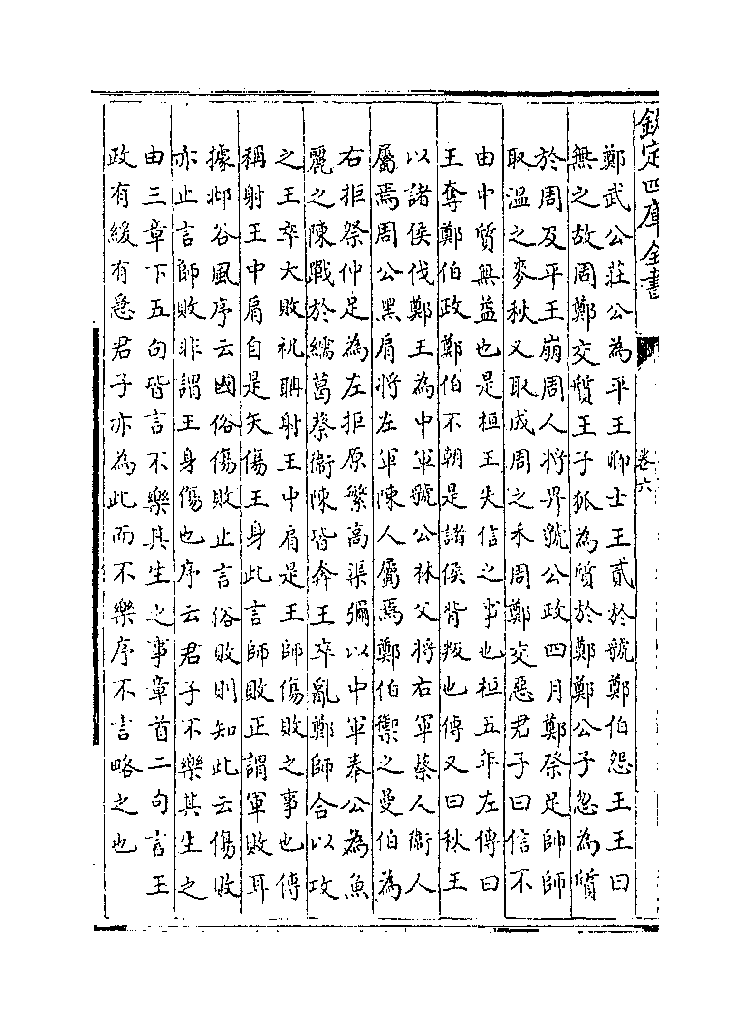 欽定四庫全書
卷六
鄭武公莊公為平王卿士王貳於虢鄭伯怨王王曰
無之故周鄭交質王子狐為質於鄭鄭公子忽為質
於周及平王崩周人將畀虢公政四月鄭祭足帥師
取溫之麥秋又取成周之禾周鄭交惡君子曰信不
由中質無益也是桓王失信之事也桓五年左傳曰
王奪鄭伯政鄭伯不朝是諸侯背叛也傳又曰秋王
以諸侯伐鄭王為中軍虢公林父將右軍蔡人衛人
屬焉周公黑肩將左軍陳人屬焉鄭伯禦之曼伯為
右拒祭仲足為左拒原繁高渠彌以中軍奉公為魚
麗之陳戰於繻葛蔡衛陳皆奔王卒亂鄭師合以攻
之王卒大敗祝聃射王中肩是王師傷敗之事也傳
稱射王中肩自是矢傷王身此言師敗正謂軍敗耳
據邶谷風序云國俗傷敗止言俗敗則知此云傷敗
亦止言師敗非謂王身傷也序云君子不樂其生之
由三章下五句皆言不樂其生之事章首二句言王
政有緩有急君子亦為此而不樂序不言略之也